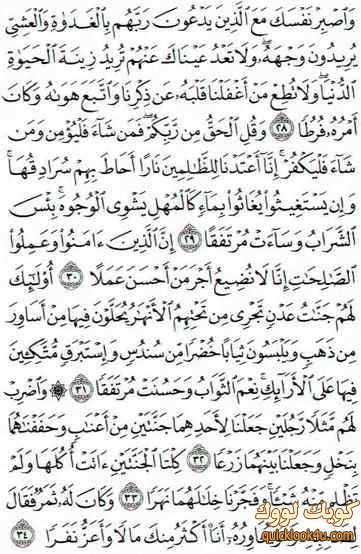 وَٱصۡبِرۡ نَفۡسَكَ مَعَ ٱلَّذِينَ يَدۡعُونَ رَبَّهُم بِٱلۡغَدَوٰةِ وَٱلۡعَشِيِّ
يُرِيدُونَ وَجۡهَهُۥۖ وَلَا تَعۡدُ عَيۡنَاكَ عَنۡهُمۡ تُرِيدُ زِينَةَ ٱلۡحَيَوٰةِ
ٱلدُّنۡيَاۖ وَلَا تُطِعۡ مَنۡ أَغۡفَلۡنَا قَلۡبَهُۥ عَن ذِكۡرِنَا وَٱتَّبَعَ هَوَىٰهُ وَكَانَ
أَمۡرُهُۥ فُرُطًا ٢٨ وَقُلِ ٱلۡحَقُّ مِن رَّبِّكُمۡۖ فَمَن شَآءَ فَلۡيُؤۡمِن وَمَن
شَآءَ فَلۡيَكۡفُرۡۚ إِنَّآ أَعۡتَدۡنَا لِلظَّٰلِمِينَ نَارًا أَحَاطَ بِهِمۡ سُرَادِقُهَاۚ
وَإِن يَسۡتَغِيثُواْ يُغَاثُواْ بِمَآءٖ كَٱلۡمُهۡلِ يَشۡوِي ٱلۡوُجُوهَۚ بِئۡسَ
ٱلشَّرَابُ وَسَآءَتۡ مُرۡتَفَقًا ٢٩ إِنَّ ٱلَّذِينَ ءَامَنُواْ وَعَمِلُواْ
ٱلصَّٰلِحَٰتِ إِنَّا لَا نُضِيعُ أَجۡرَ مَنۡ أَحۡسَنَ عَمَلًا ٣٠ أُوْلَٰٓئِكَ
لَهُمۡ جَنَّٰتُ عَدۡنٖ تَجۡرِي مِن تَحۡتِهِمُ ٱلۡأَنۡهَٰرُ يُحَلَّوۡنَ فِيهَا مِنۡ أَسَاوِرَ
مِن ذَهَبٖ وَيَلۡبَسُونَ ثِيَابًا خُضۡرٗا مِّن سُندُسٖ وَإِسۡتَبۡرَقٖ مُّتَّكِـِٔينَ
فِيهَا عَلَى ٱلۡأَرَآئِكِۚ نِعۡمَ ٱلثَّوَابُ وَحَسُنَتۡ مُرۡتَفَقٗا ٣١ ۞ وَٱضۡرِبۡ
لَهُم مَّثَلٗا رَّجُلَيۡنِ جَعَلۡنَا لِأَحَدِهِمَا جَنَّتَيۡنِ مِنۡ أَعۡنَٰبٖ وَحَفَفۡنَٰهُمَا
بِنَخۡلٖ وَجَعَلۡنَا بَيۡنَهُمَا زَرۡعٗا ٣٢ كِلۡتَا ٱلۡجَنَّتَيۡنِ ءَاتَتۡ أُكُلَهَا وَلَمۡ
تَظۡلِم مِّنۡهُ شَيۡـٔٗاۚ وَفَجَّرۡنَا خِلَٰلَهُمَا نَهَرٗا ٣٣ وَكَانَ لَهُۥ ثَمَرٞ فَقَالَ
يُحَاوِرُهُۥٓ أَنَا۠ أَكۡثَرُ مِنكَ مَالٗا وَأَعَزُّ نَفَرٗا ٣٤
كويك لووك
www.quicklook4u.com